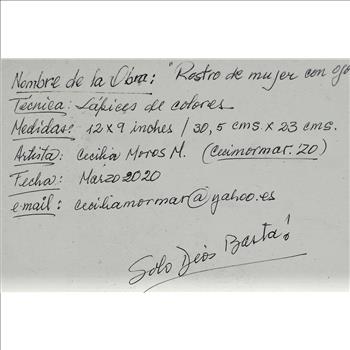 Nombre de la Obra: "Rostro de mujer con ojo
Técnica: Lápices de colores
Medidas: 12 x 9 inches / 30,5 cms. x 23 cms.
Artista: Cecilia Moros M. (Cecimormar.'20)
Fecha: Marzo 2020
e.mail: ceciliamormar@yahoo.es
Solo Dios Basta!